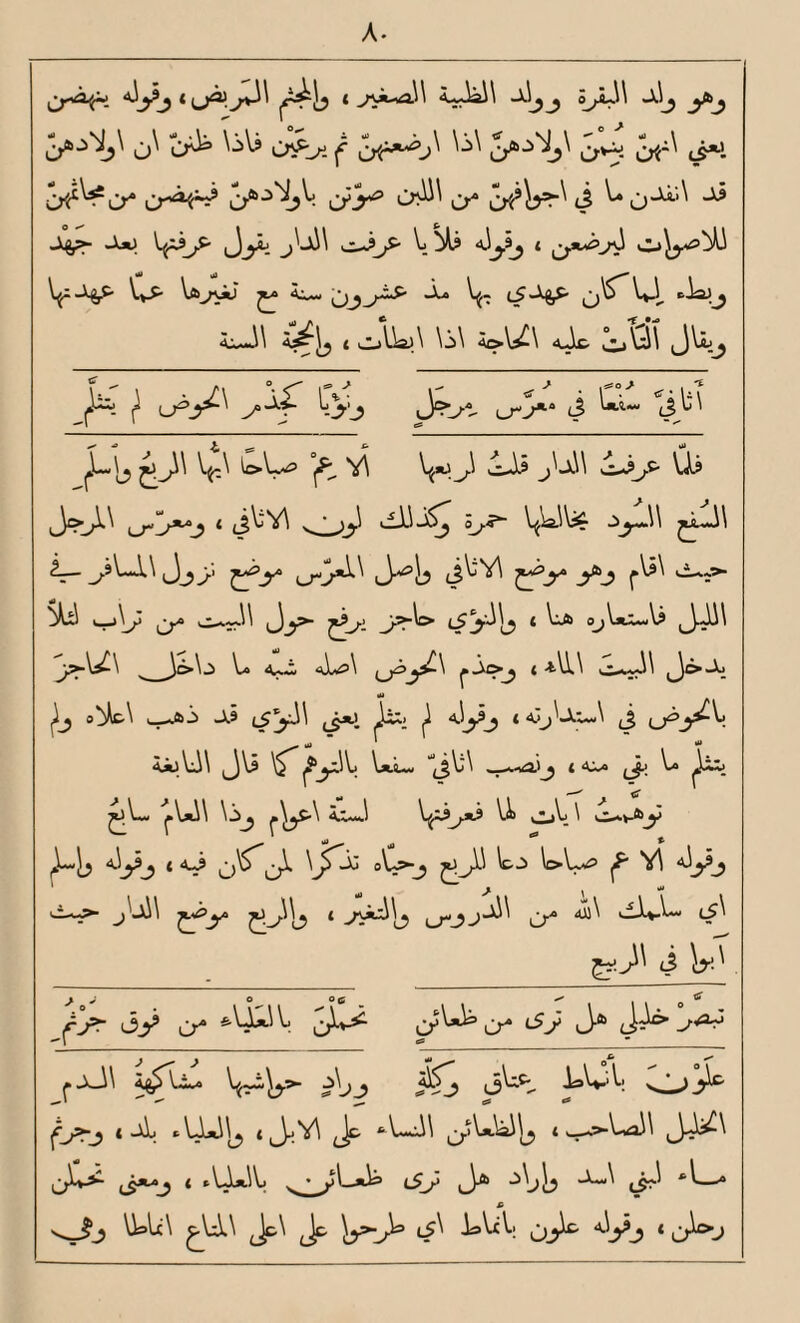 ٨٠
وهو ولد البقرة وولد الظبية الصغير ، والمجثم المربض ، وقوله ينهضن
يعني انهن ينمن اولادهن اذا ارضعنهن ثم يرعين فاذا ظنن ان اولادهن
قد انفدن ما في اجوافهن من اللبن صوتن باولادهن فينهضن من مجاثمهن
للاصوات ليرضعن ، وقوله فلأيا عرفت الدار يقول عرفتها بعد جهد
وبطء لما كان عهدي بها مذ عشرون سنة
ويقال التأت عليه الحاجة اذا ابطأت ، والحجة السنة
أثافيَّ سفعًا في معرّس مرجل ونؤيًا كجذم الحوض لم يتثلّم
فلما عرفت الدار قلت لربعها ألا عِمْ صباحا أيها الربع واسلم
السفع السود تخالطها حمرة وكذلك لون الاثافي ، ومعرس المرجل
حيث اقام وهو موضع الاثافي واصل المعرس موضع نزول المسافر في
الليل فاستعاره هنا ، والنؤى حاجز يرفع حول البيت من تراب لئلا
يدخل البيت الماء ، وجذم الحوض اصله شبه ما داخل الحاجز
بالحوض في استدارته ، وقوله لم يتثلم يعني النؤى قد ذهب اعلاه ولم
يتثلم ما بقي منه ، ونصب اثافيّ سفعا بالتوهم كما قال النابغة
توهمت آيات لها فعرفتها لستة اعوام وذا العام سابع
وقوله الا عم صباحا دعا للربع وحياه تذكرا لمن كان فيه ، وقوله واسلم
اي سلمك الله من الدروس والتغير ، والربع موضع الدار حيث
اقاموا في الربيع
تبصّر خليلي هل ترى من ظعائن تحمّلن بالعلياء من فوق جرثم
علون بأنماط عتاق وكلّة وراد حواشيها مشاكهة الدم
الخليل الصاحب ، والظعائن النساء على الابل ، والعلياء بلد ، وجرثم
ماء لبني اسد واراد هل ترى ظعائن بالعلياء ، ومعنى تحملن
رحلن ، وقوله علون بانماط اي طرحوا على اعلى المتاع انماطا وهي